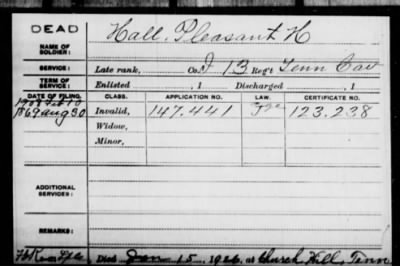 DEAD
NAME OF SOLDIER: Hall, Pleasant H
SERVICE: Late rank, Co. I 13 Reg't Tenn Cav
TERM OF SERVICE: Enlisted , 1 Discharged , 1
DATE OF FILING. CLASS. APPLICATION NO. LAW. CERTIFICATE NO.
1908
1869 Aug 30 Invalid, 147.441 123.238
Widow,
Minor,
ADDITIONAL SERVICES:
REMARKS:
Died Jan 15, 1926, at Church Hill, Tenn